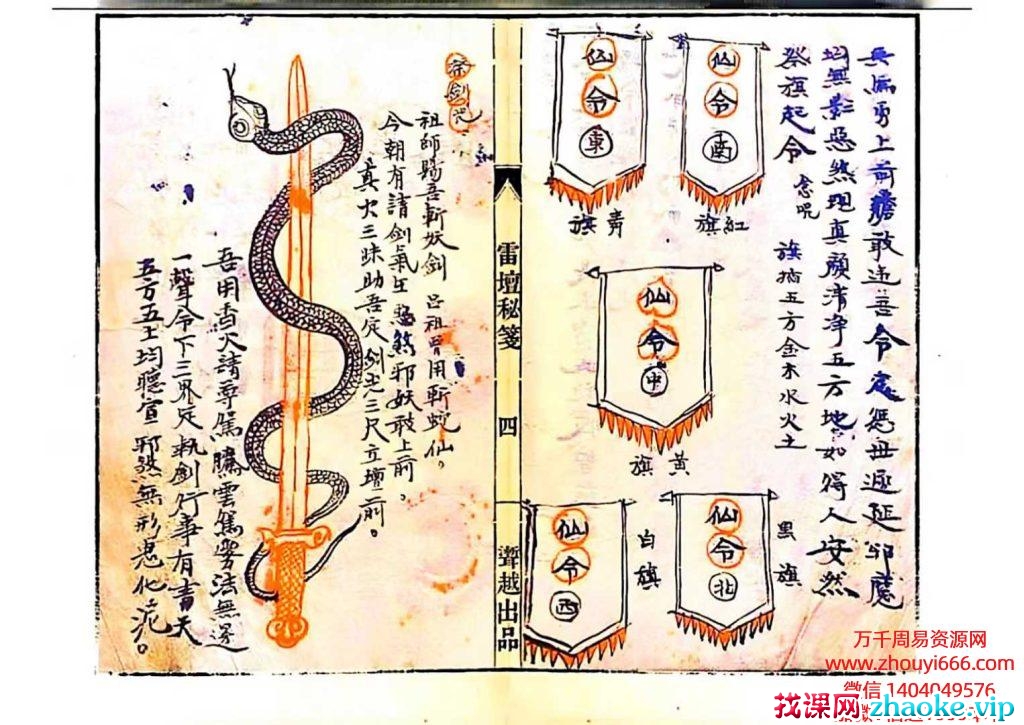 兵馬勇上前誰敢违吾令處您毋遲延邪魔
均無影惡煞现真顏清净五方地如得人安然
祭旗起令 念咒
旗指五方金木水火土
仙令南
紅旗
仙令東
青旗
仙令中
黄旗
仙令北
黑旗
仙令西
白旗
雷壇秘箋
四
聾越出品
祭劍咒
祖師賜吾斬妖劍 吕祖曾用斬蛇仙。
今朝有請劍氣生 惡煞邪妖敢上前。
真火三昧助吾定 劍光三尺立壇前。
吾用香火請尊駕騰雲駕雾法無邊
一聲令下三界定執劍行事有青天
五方五土均聽宣邪煞無形鬼化泥。
万千周易资源网
www.zhouyi666.com
微信 1404049576
找课网zhaoke.vip